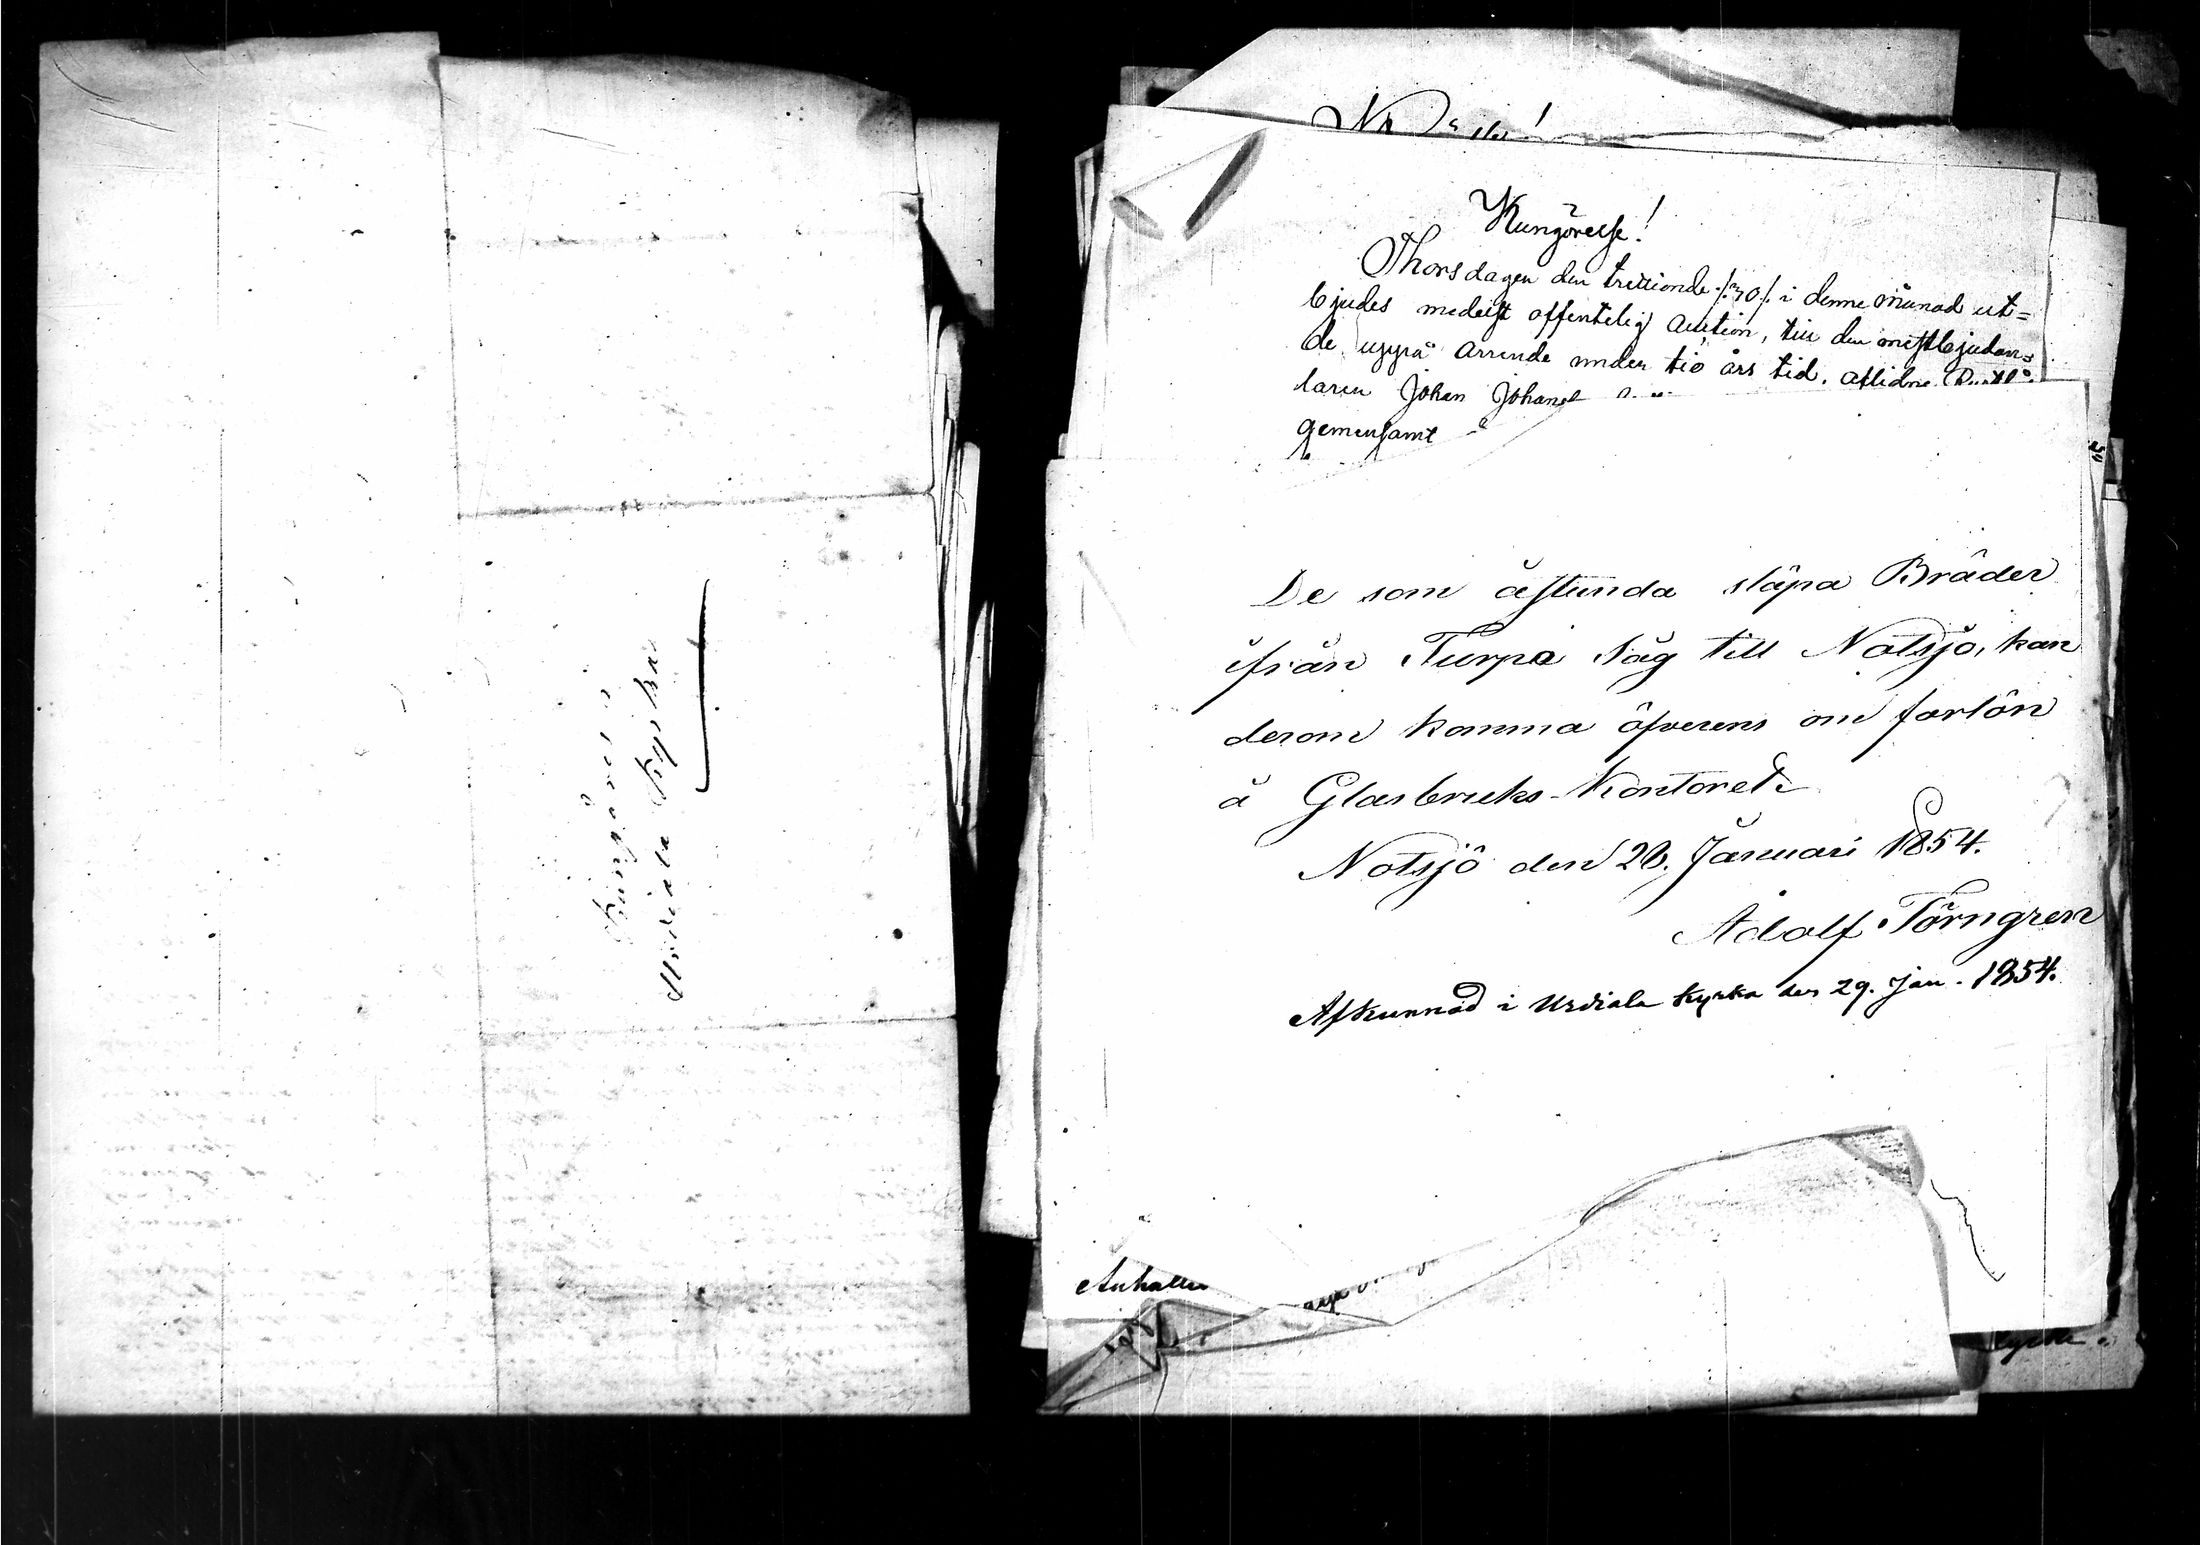 Kungöres i
Urdiala Kyrka
Kungörelse!
Thorsdagen den trettionde /:30/: i denne månad ut=
bjudes medelst offentelig auction, till den mestbjudan=
de uppå arrende under tio års tid, aflidne
laren Johan Johans
gemensamt
De som åstunda släpa Bräder
ifrån Turpa Såg till Notsjö, kan
derom komma öfverens om forlön
å Glasbruks-Kontoret.
Notsjö den 28. Januari 1854.
Adolf Törngren
Afkunnad i Urdiala Kyrka den 29. Jan. 1854.
Anhålles